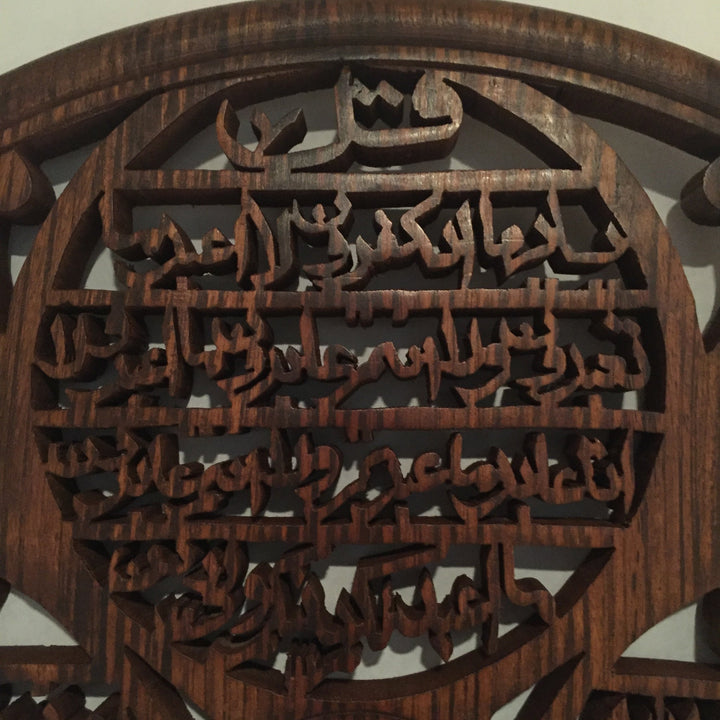 قل
يا يها الكفرون لا اعبد ما
تعبدون ولا انتم عابدون ما اعبد ولا
انا عابد ما عبدتم ولا انتم عابدون
ما اعبد لكم دينكم ولي دين